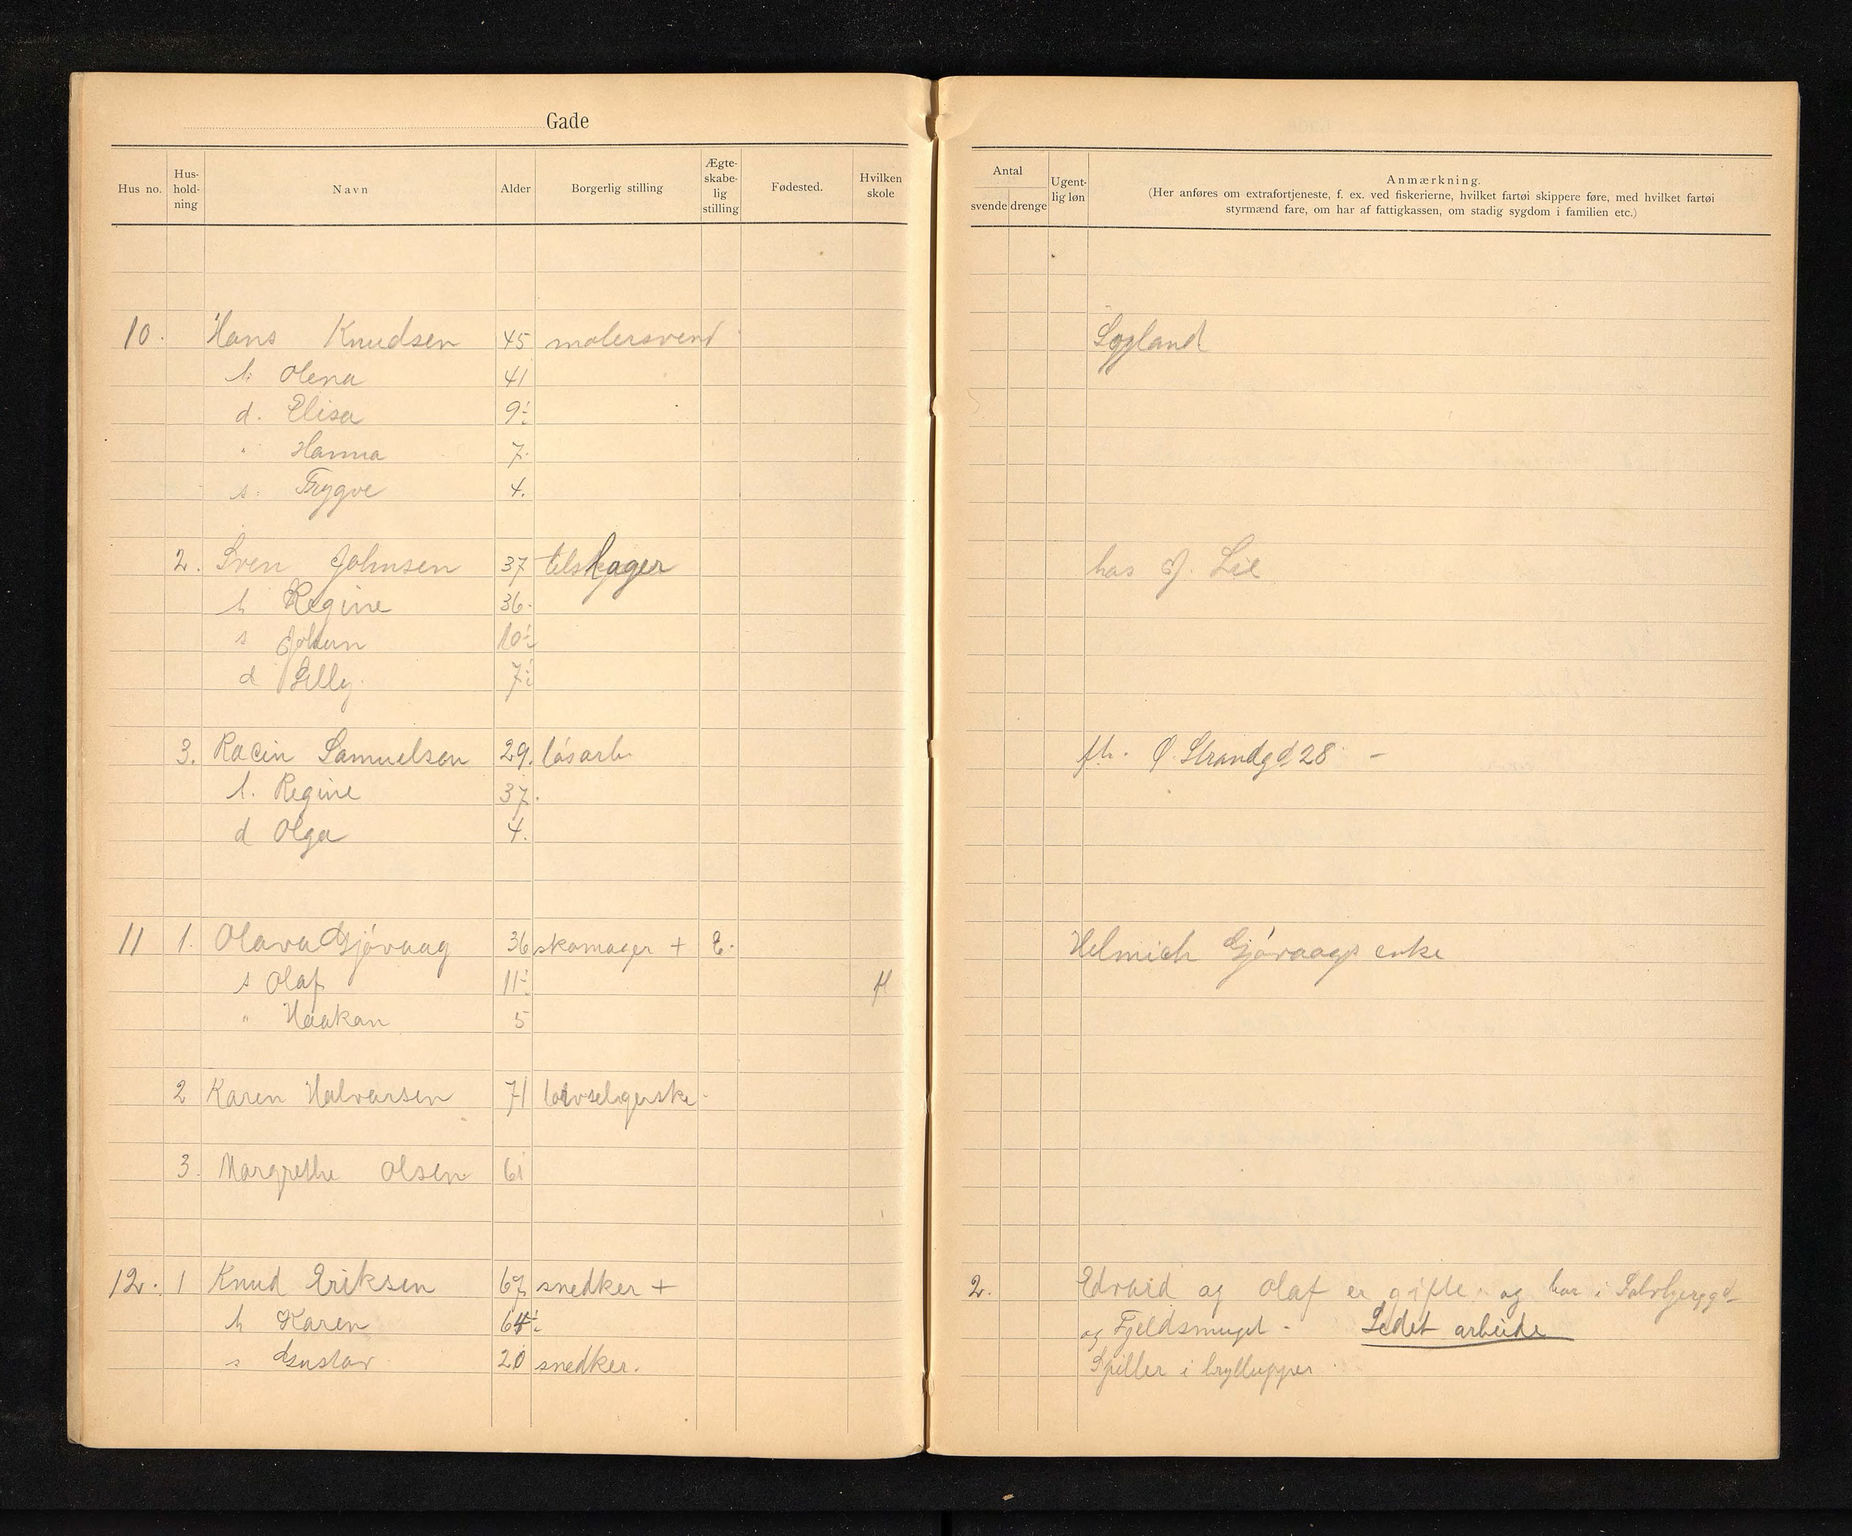 Gade
Hus no. Hus-hold-ning Navn Alder Borgerlig stilling Ægte-skabe-lig stilling Fødested. Hvilken skole
Antal svende drenge Ugent-lig løn Anmærkning.
(Her anføres om extrafortjeneste, f. ex. ved fiskerierne, hvilket fartøi skippere føre, med hvilket fartøi
styrmænd fare, om har af fattigkassen, om stadig sygdom i familien etc.)
10. Hans Knudsen 45 malersvend Sogland
h: Olena 41
d. Elisa 9
" Hanna 7.
s: Trygve 4.
2. Sven Johnsen 37 hos J. Lie
h Regine 36.
s Johan 10
d Lilly. 7
3. Racin Samuelsen 29. løsarb Ø. Strandgd 28 -
h. Regine 37.
d Olga 4.
11 1. Olava Gjøvaag 36 skomager + E. Helmich Gjøvaags enke
s Olaf 11 H
" Haakon 5
2 Karen Halvorsen 71
3. Margrethe Olsen 61
12. 1 Knud Eriksen 67 snedker + 2. Edvard og Olaf er gifte og bor i
h Karen 64 og Fjeldsmuget - Ledet arbeide
s Gustav 20 snedker. Spiller i brylluper.